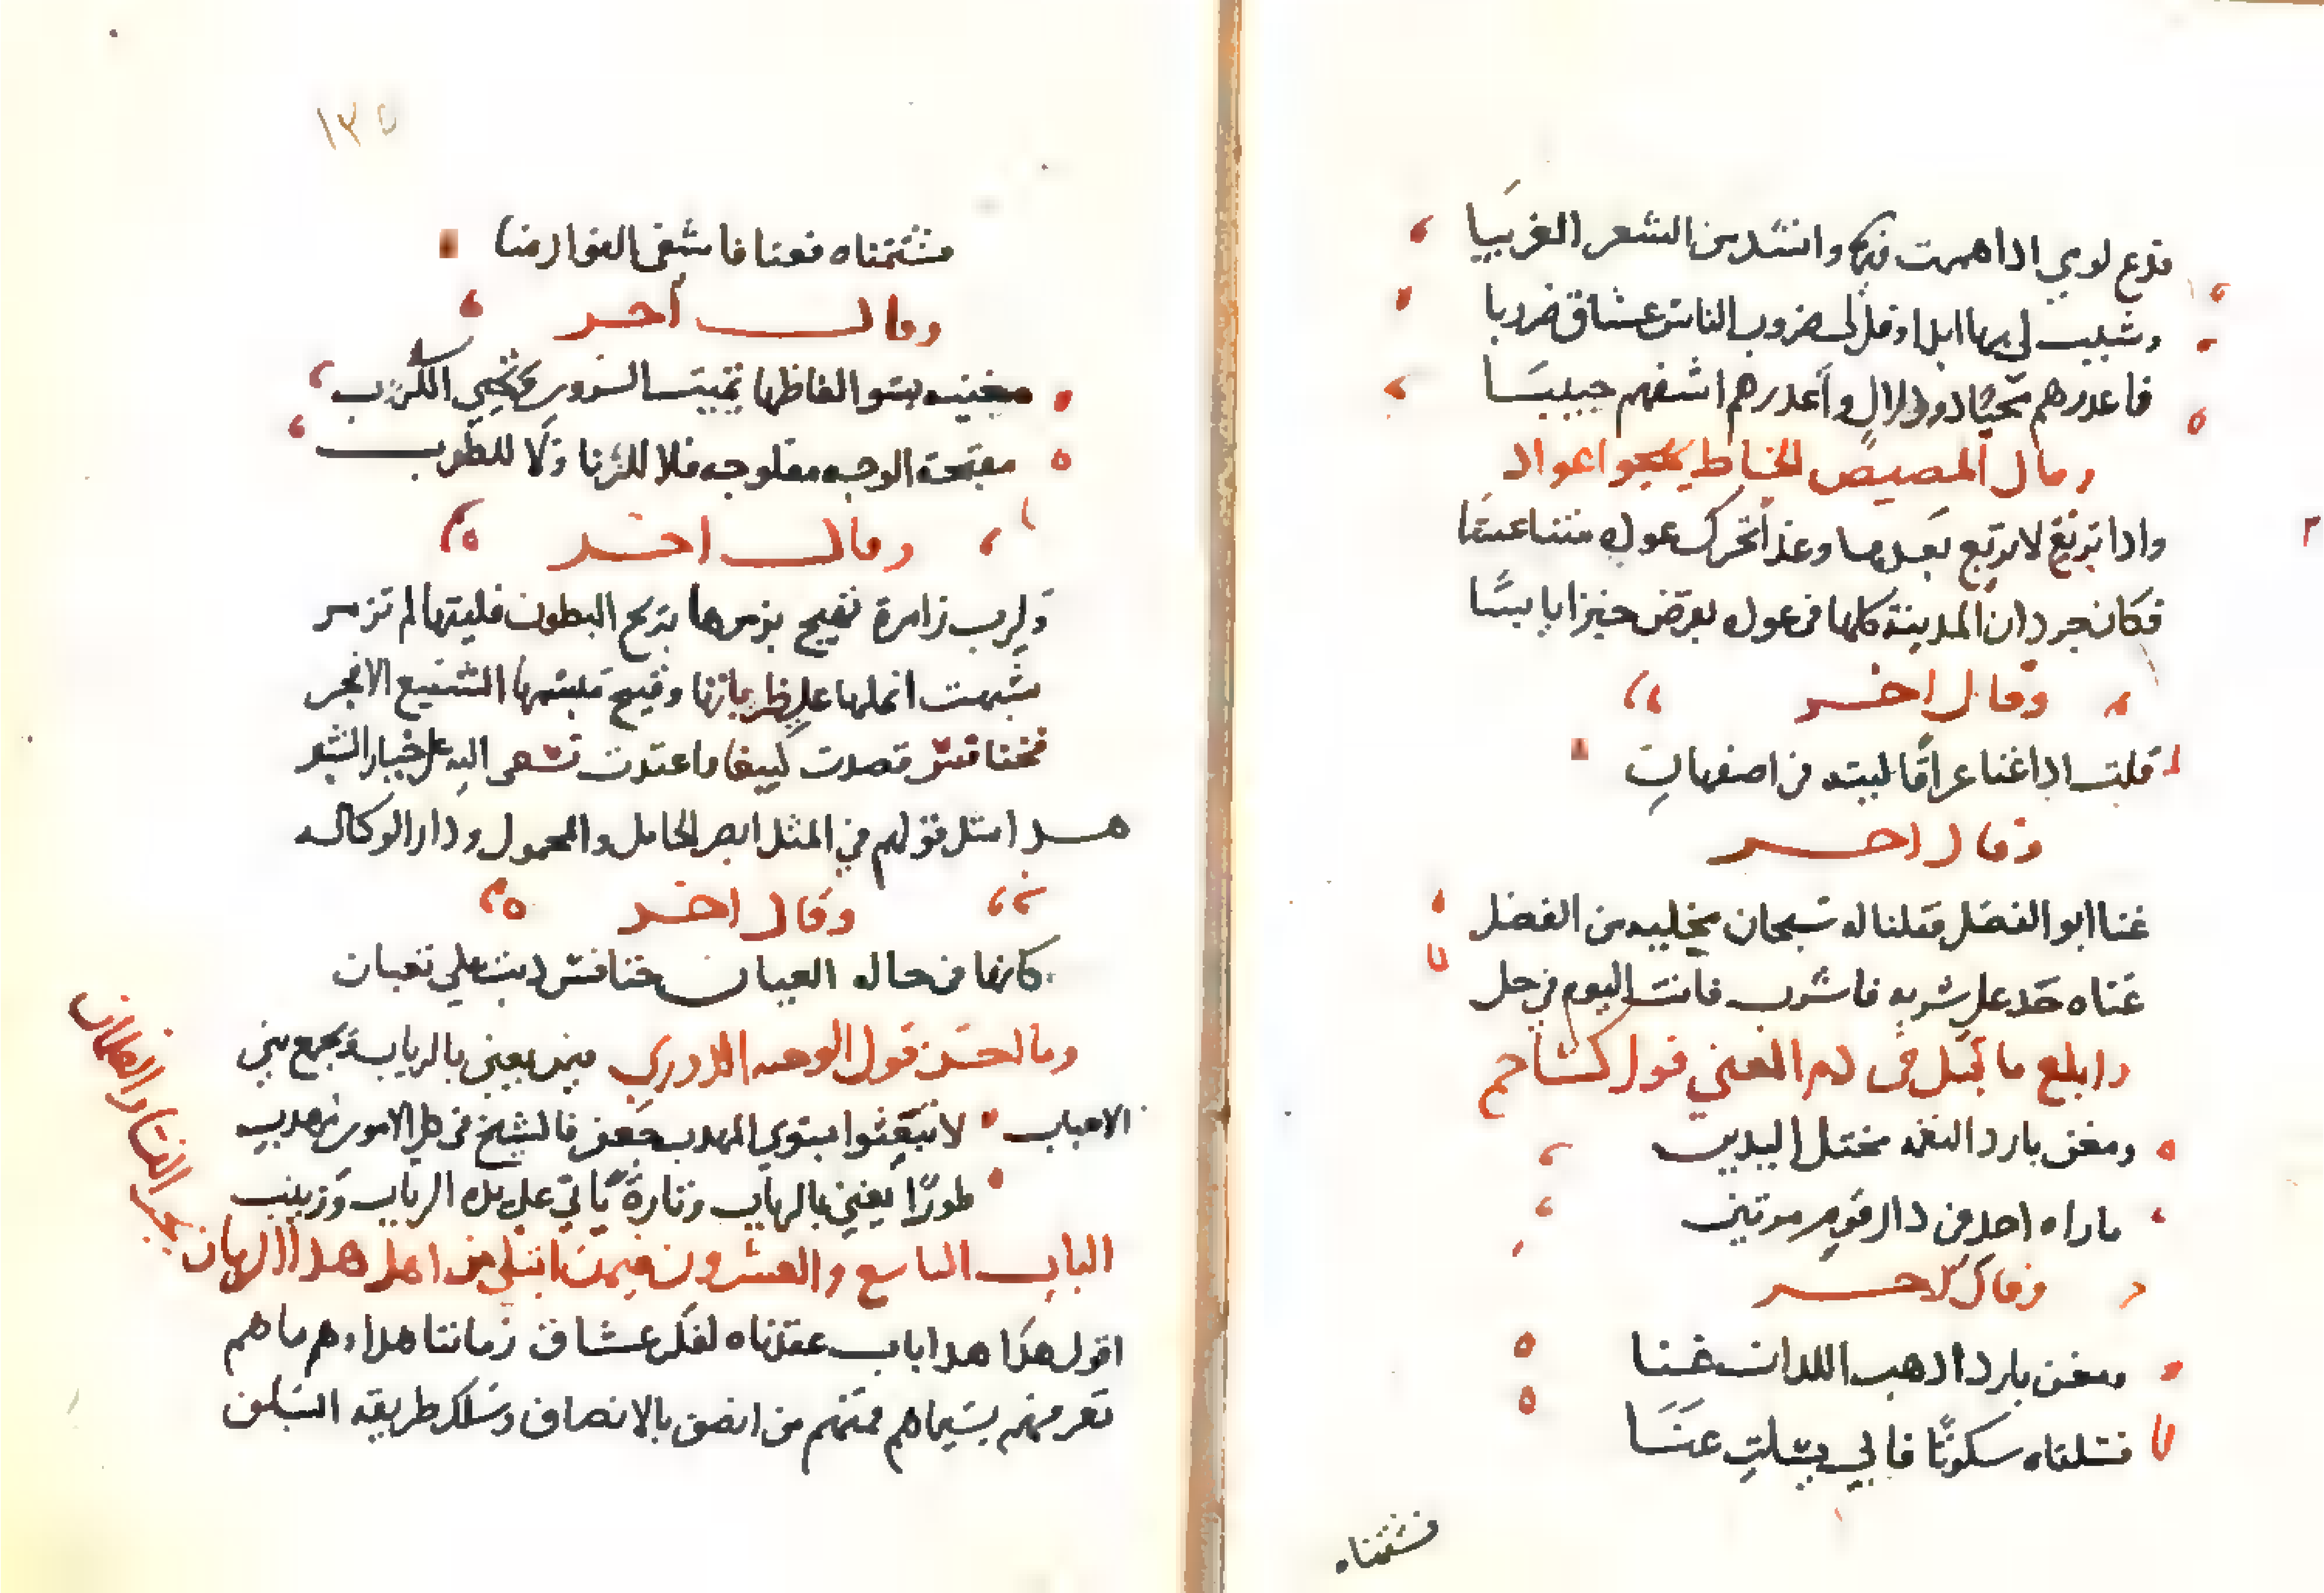 فدع لومي اذا همت فيها وانشد من الشعر الغريبا
وشبب لي بها ابدا وقل لي ضروب الناس عشاق ضروبا
فاعذرهم اشفهم حبيبا
وقال المصيصي الخياط يهجوا عواد
واذا تربع لا تربع بعدها وغدا تحرك عوده متناعسًا
فكان جردان المدينة كلها في عوده يقرضن خبزا يابسًا
وقال اخر
قلت اذا غنا عراقًا ليته في اصفهان
وقال اخر
غنا ابو الفضل فقلنا له سبحان من الفضل
غناه حد على شربه فاشرب فانت اليوم في حل
وابلغ ما قيل في ذم المغني قول كشاجم
ومغن بارد النغمة مختل اليدين
ما راه احد في دار قوم مرتين
وقال اخر
ومغن بارد اذهب اللذات غنا
فسلناه سكوتًا فابي يسكت عنا
فشتمناه
١٢٥
فشتمناه فغنا فاشتفى العوار منا
وقال اخر
مغنية الفاظها تميت السرور وتحيي الكرب
مقبحة الوجه مفلوجه فلا للزنا ولا للطرب
وقال اخر
ولرب زامرة تهيج بزمرها ريح البطون فليتها لم تزمر
شبهت انملها على زنارها وقبيح مبسمها الشنيع الابخر
بخنافس قصدت كنيفا واغتدت تسعى اليه على خيار الشنبر
هذا مثل قولهم في المثل ابصر الحامل والمحمول ودار الوكاله
وقال اخر
كانها في حاله العيان خنافس دبت على ثعبان
وما احسن قول الوجيه الذروي فيمن يغني بالرباب ويجمع بين
الاحباب لا تبعثوا بسوى المهذب جعفر فالشيخ في كل الامور مهذب
طورًا يغني بالرباب وتارة ياتي على يده الرباب وزينب
الباب التاسع والعشرون فيمن ابتلى من اهل هذا الزمان
بحب النساء والغلمان
اقول هذا هذا باب عقدناه لذكر عشاق زماننا هذا وهم ما هم
تعرفهم بسيماهم فمنهم من اتصف بالانصاف وسلك طريقه السلف